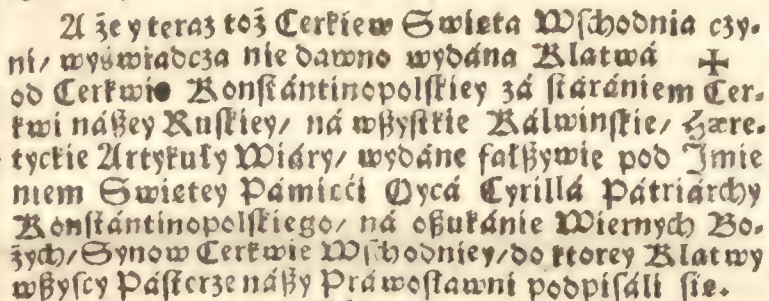 A że y teraz toż Cerkiew Swięta Wschodnia czy-
ni/ wyświadcza nie dawno wydána Klatwá ✠
od Cerkwie Konstántinopolskiey zá stárániem Cer-
kwi nászey Ruskiey/ ná wszystkie Kálwinskie/ Hære-
tyckie Artykuły Wiáry/ wydáne fałszywie pod Imie
niem Swietey Pámięći Oycá Cyrillá Pátriárchy
Konstántinopolskiego/ ná oszukánie Wiernych Bo-
żych/ Synow Cerkwie Wschodniey/ do ktorey Klatwy
wszyscy Pásterze nászy Práwosławni podpisáli sie.